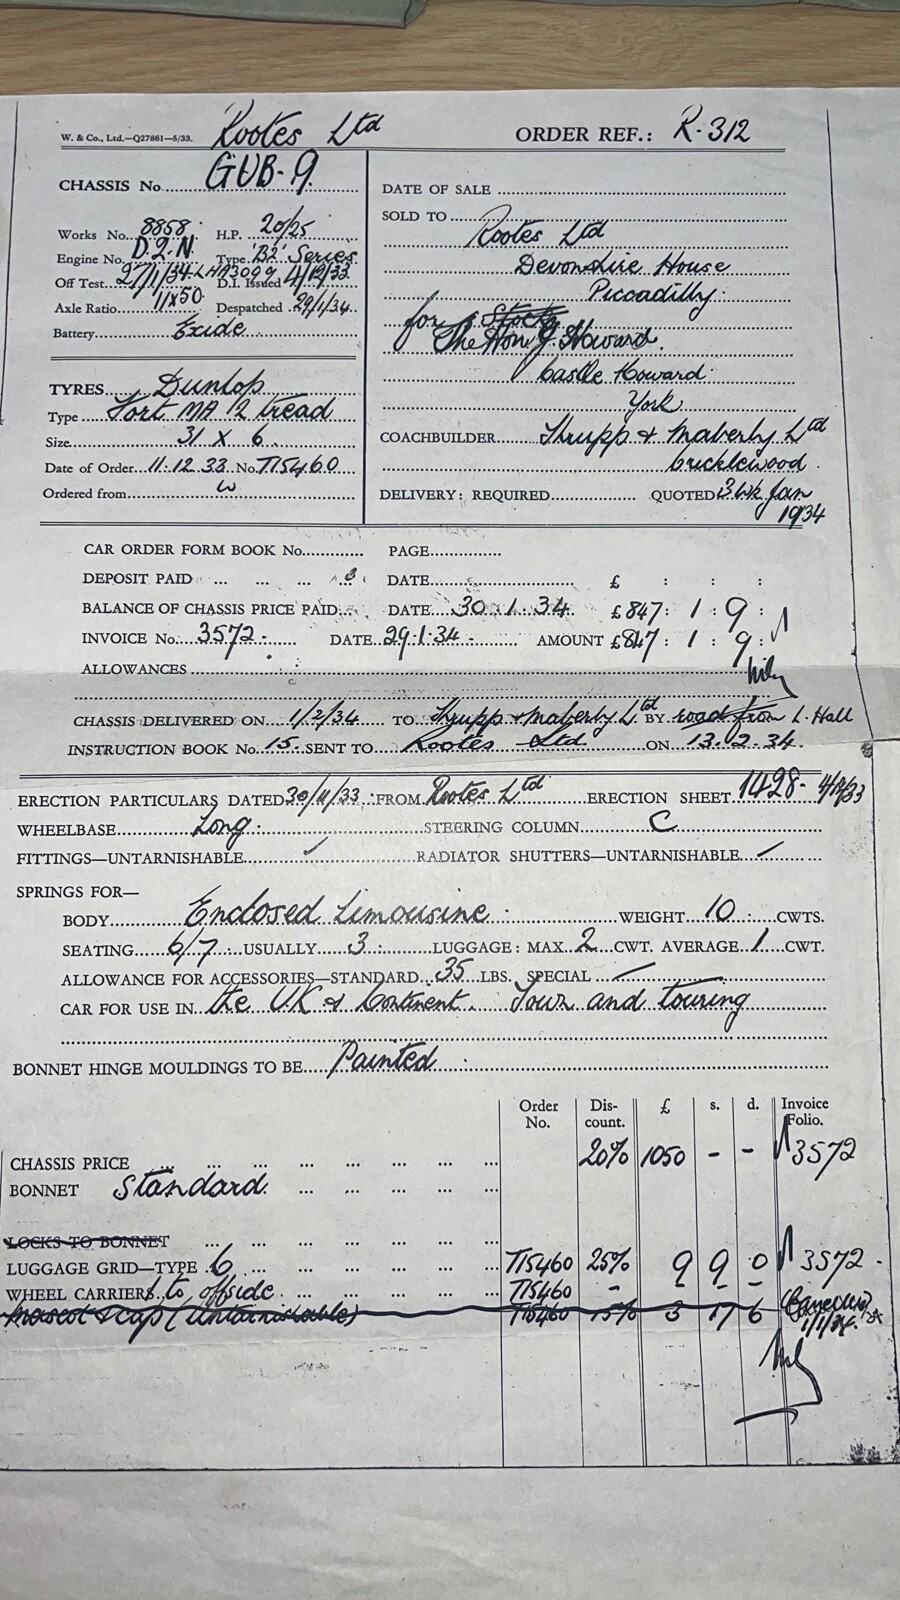 W. & Co., Ltd.—Q27861—5/33. Rootes Ltd ORDER REF.: R-312
CHASSIS No. GUB-9.
Works No. 8858. H.P. 20/25
Engine No. D.2.N. Type 'B2' Series.
Off Test 27/1/34. LHA3099 D.I. Issued 4/12/33
Axle Ratio 11x50. Despatched 29/1/34.
Battery Exide
TYRES Dunlop
Type Fort MA 12 tread
Size 31 x 6.
Date of Order 11.12.33 No. T15460
Ordered from W
DATE OF SALE
SOLD TO Rootes Ltd
Devonshire House
Piccadilly.
for Stock
The Hon. G. Howard.
Castle Howard
York
COACHBUILDER Thrupp & Maberly Ltd
Cricklewood.
DELIVERY: REQUIRED QUOTED 3 wk Jan
1934
CAR ORDER FORM BOOK No. PAGE
DEPOSIT PAID ... ... ... DATE £ : : :
BALANCE OF CHASSIS PRICE PAID DATE 30.1.34 £847: 1: 9:
INVOICE No. 3572. DATE 29.1.34. AMOUNT £847: 1: 9:
ALLOWANCES
CHASSIS DELIVERED ON 1/2/34 TO Thrupp & Maberly Ltd BY road from L. Hall
INSTRUCTION BOOK No. 15. SENT TO Rootes Ltd. ON 13.2.34.
ERECTION PARTICULARS DATED 30/11/33 FROM Rootes Ltd ERECTION SHEET 1428- 4/12/33
WHEELBASE Long. STEERING COLUMN C
FITTINGS—UNTARNISHABLE ✓ RADIATOR SHUTTERS—UNTARNISHABLE ✓
SPRINGS FOR—
BODY Enclosed Limousine. WEIGHT 10. CWTS.
SEATING 6/7. USUALLY 3. LUGGAGE: MAX. 2 CWT. AVERAGE 1 CWT.
ALLOWANCE FOR ACCESSORIES—STANDARD 35 LBS. SPECIAL —
CAR FOR USE IN the UK & Continent. Town and touring
BONNET HINGE MOULDINGS TO BE Painted.
Order No. Dis-count. £ s. d. Invoice Folio.
CHASSIS PRICE ... ... ... ... ... ... ... 20% 1050 - - 3572
BONNET Standard. ... ... ... ... ...
LOCKS TO BONNET ... ... ... ... ... ... ...
LUGGAGE GRID—TYPE 6 ... ... ... ... ... ... T15460 25% 9 9 0 3572.
WHEEL CARRIERS 1 to offside. ... ... ... ... ... T15460 - - - -
Mascot & cap (Untarnishable) T15460 15% 3 17 6 Cancelled
1/1/34.